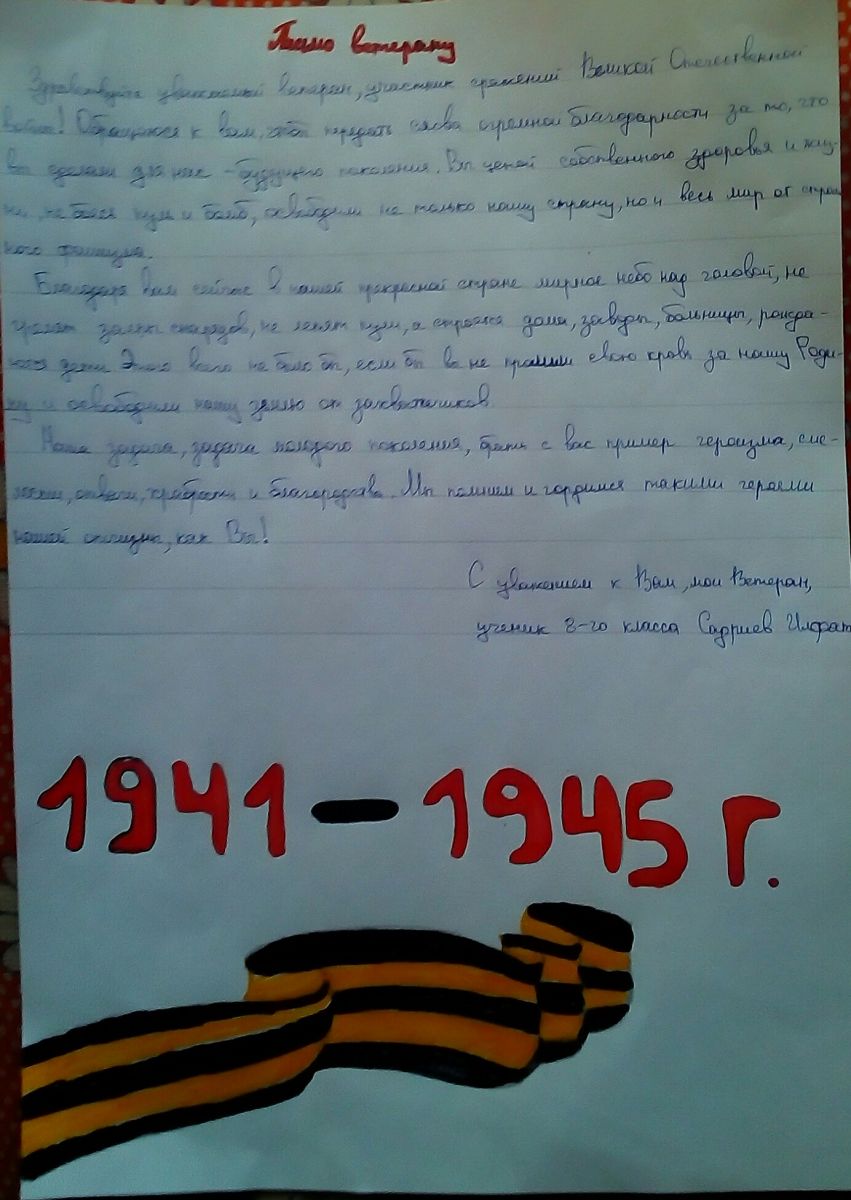 Письмо ветерану
Здравствуйте уважаемый ветеран, участник сражений Великой Отечественной
войны! Обращаюсь к вам, чтоб передать слова огромной благодарности за то, что
вы сделали для нас - будущего поколения. Вы ценой собственного здоровья и жиз-
ни, не боясь пуль и бомб, освободили не только нашу страну, но и весь мир от страш
ного фашизма.
Благодаря вам сейчас в нашей прекрасной стране мирное небо над головой, не
гремят залпы снарядов, не летят пули, а строятся дома, заводы, больницы, рожда-
ются дети. Этого всего не было бы, если бы вы не пролили свою кровь за нашу Роди-
ну и освободили нашу землю от захватчиков.
Наша задача, задача молодого поколения, брать с вас пример героизма, сме-
лости, отваги, храбрости и благородства. Мы помним и гордимся такими героями
нашей отчизны, как Вы!
С уважением к Вам, мои Ветеран,
ученик 8-го класса Садриев Илфат
1941 - 1945 г.